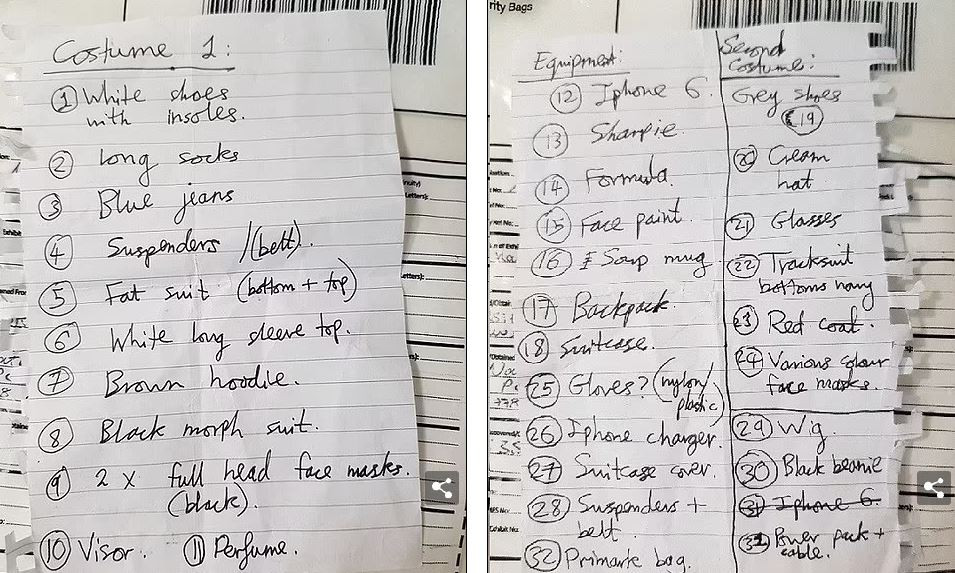 Costume 1:
① White shoes
with insoles.
② long socks
③ Blue jeans
④ Suspenders /(belt).
⑤ Fat suit (bottom + top)
⑥ White long sleeve top.
⑦ Brown hoodie.
⑧ Black morph suit.
⑨ 2 x full head face masks.
(black).
⑩ Visor. ⑪ Perfume.
rity Bags
Equipment:
⑫ Iphone 6.
⑬ Sharpie
⑭ Formula.
⑮ Face paint.
⑯ Soup mug
⑰ Backpack.
⑱ Suitcase.
㉕ Gloves? (nylon/
plastic)
㉖ Iphone charger.
㉗ Suitcase cover.
㉘ Suspenders +
belt.
㉜ Primark bag.
Second
Costume:
Grey shoes
⑲
⑳ Cream
hat
㉑ Glasses
㉒ Tracksuit
bottoms navy
㉓ Red coat.
㉔ Various colour
face masks.
㉙ Wig.
㉚ Black beanie
㉛ Iphone 6.
Power pack +
cable.